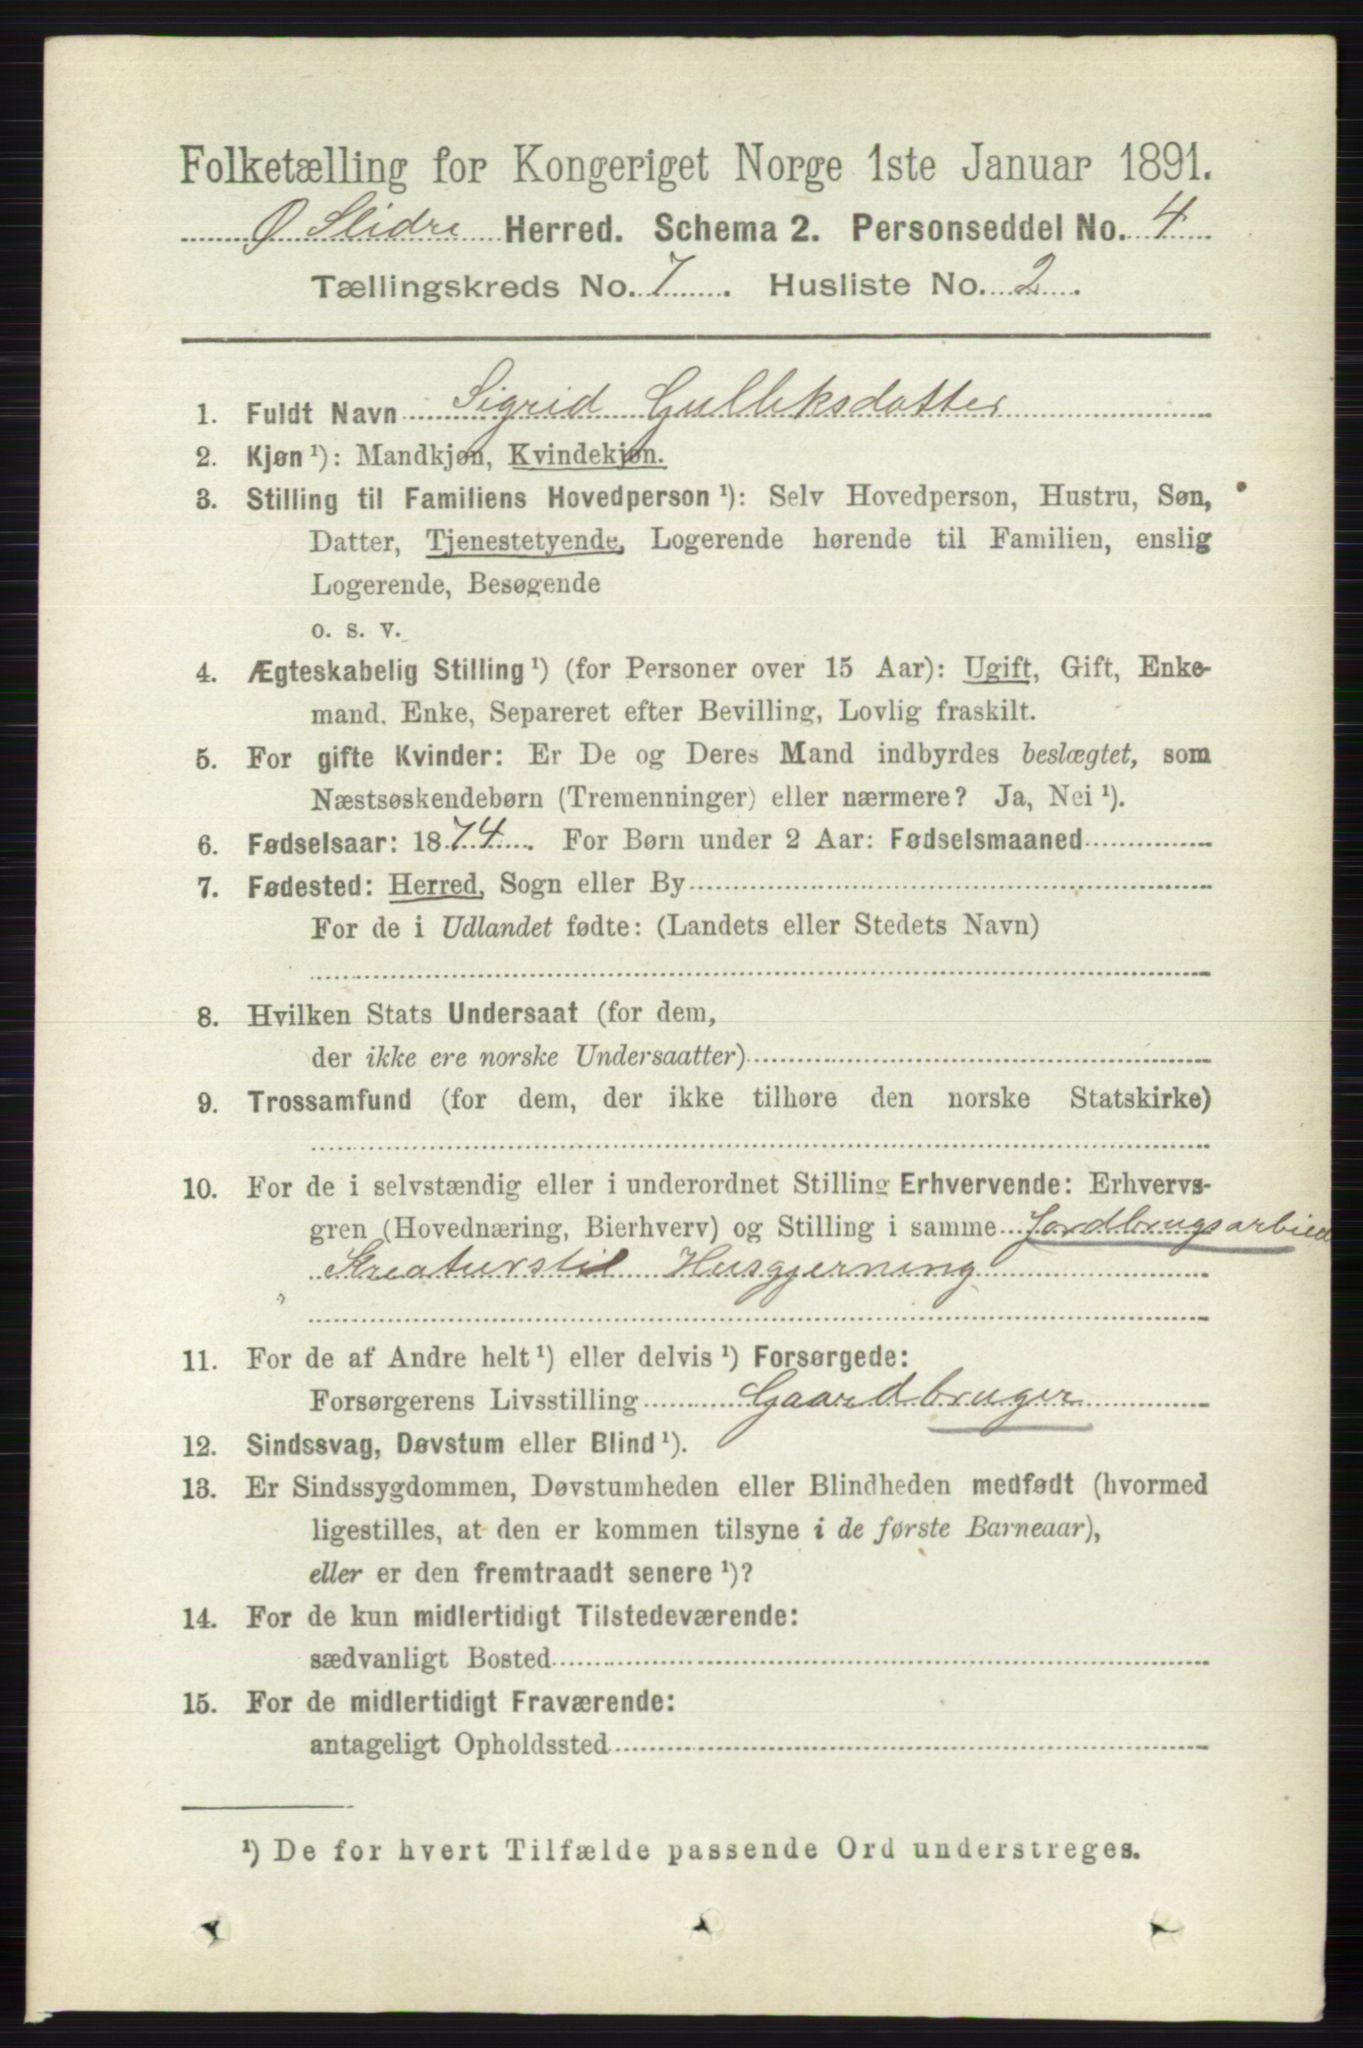 Folketælling for Kongeriget Norge 1ste Januar 1891.
Ø Slidre Herred. Schema 2. Personseddel No. 4
Tællingskreds No. 7. Husliste No. 2.
1. Fuldt Navn Sigrid Gulleksdatter
2. Kjøn ¹): Mandkjøn, Kvindekjøn.
3. Stilling til Familiens Hovedperson ¹): Selv Hovedperson, Hustru, Søn,
Datter, Tjenestetyende, Logerende hørende til Familien, enslig
Logerende, Besøgende
o. s. v.
4. Ægteskabelig Stilling ¹) (for Personer over 15 Aar): Ugift, Gift, Enke-
mand, Enke, Separeret efter Bevilling, Lovlig fraskilt.
5. For gifte Kvinder: Er De og Deres Mand indbyrdes beslægtet, som
Næstsøskendebørn (Tremenninger) eller nærmere? Ja, Nei ¹).
6. Fødselsaar: 1874. For Børn under 2 Aar: Fødselsmaaned
7. Fødested: Herred, Sogn eller By
For de i Udlandet fødte: (Landets eller Stedets Navn)
8. Hvilken Stats Undersaat (for dem,
der ikke ere norske Undersaatter)
9. Trossamfund (for dem, der ikke tilhøre den norske Statskirke)
10. For de i selvstændig eller i underordnet Stilling Erhvervende: Erhvervs-
gren (Hovednæring, Bierhverv) og Stilling i samme Jordbrugsarbied
Kreaturstil Husgjerning
11. For de af Andre helt ¹) eller delvis ¹) Forsørgede:
Forsørgerens Livsstilling Gaardbruger
12. Sindssvag, Døvstum eller Blind ¹).
13. Er Sindssygdommen, Døvstumheden eller Blindheden medfødt (hvormed
ligestilles, at den er kommen tilsyne i de første Barneaar),
eller er den fremtraadt senere ¹)?
14. For de kun midlertidigt Tilstedeværende:
sædvanligt Bosted
15. For de midlertidigt Fraværende:
antageligt Opholdssted
¹) De for hvert Tilfælde passende Ord understreges.